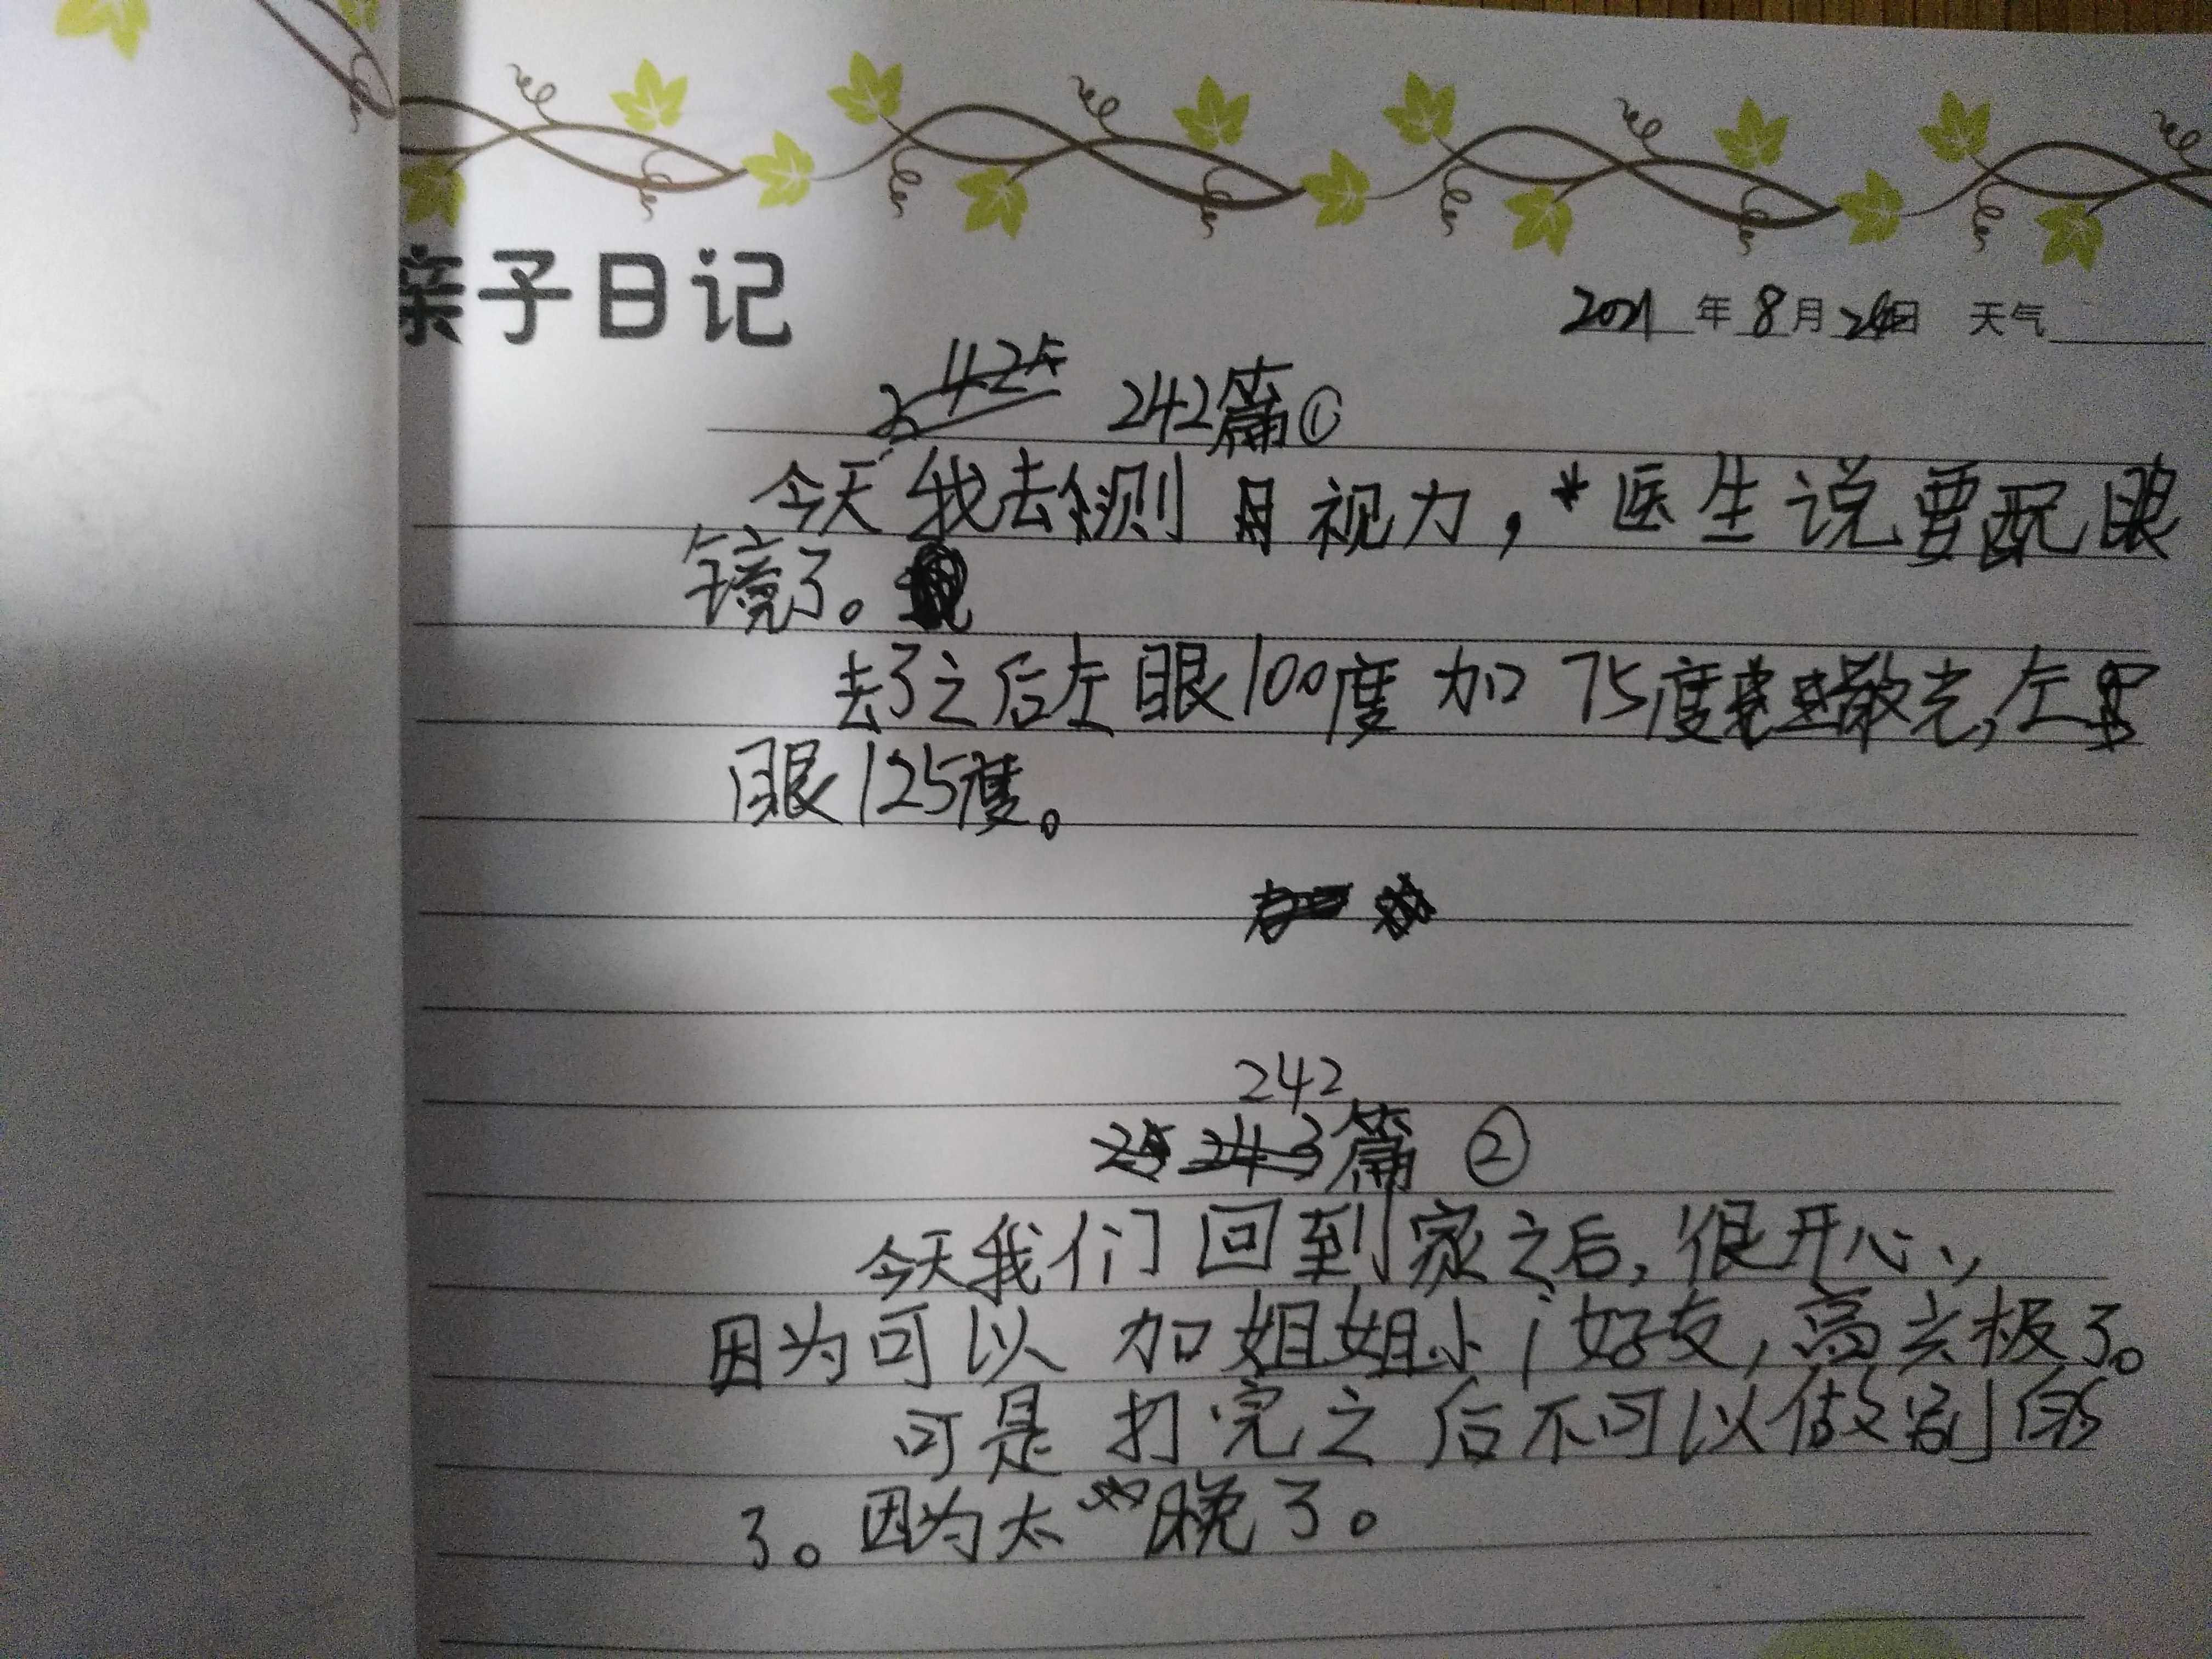 亲子日记
2021年8月24日 天气
242篇①
今天我去侧目视力，医生说要配眼
镜了。
去了之后左眼100度加75度散光，左
眼125度。
242
篇②
今天我们回到家之后，很开心，
因为可以加姐姐小i好友，高兴极了。
可是打完之后不可以做别的
了。因为太晚了。